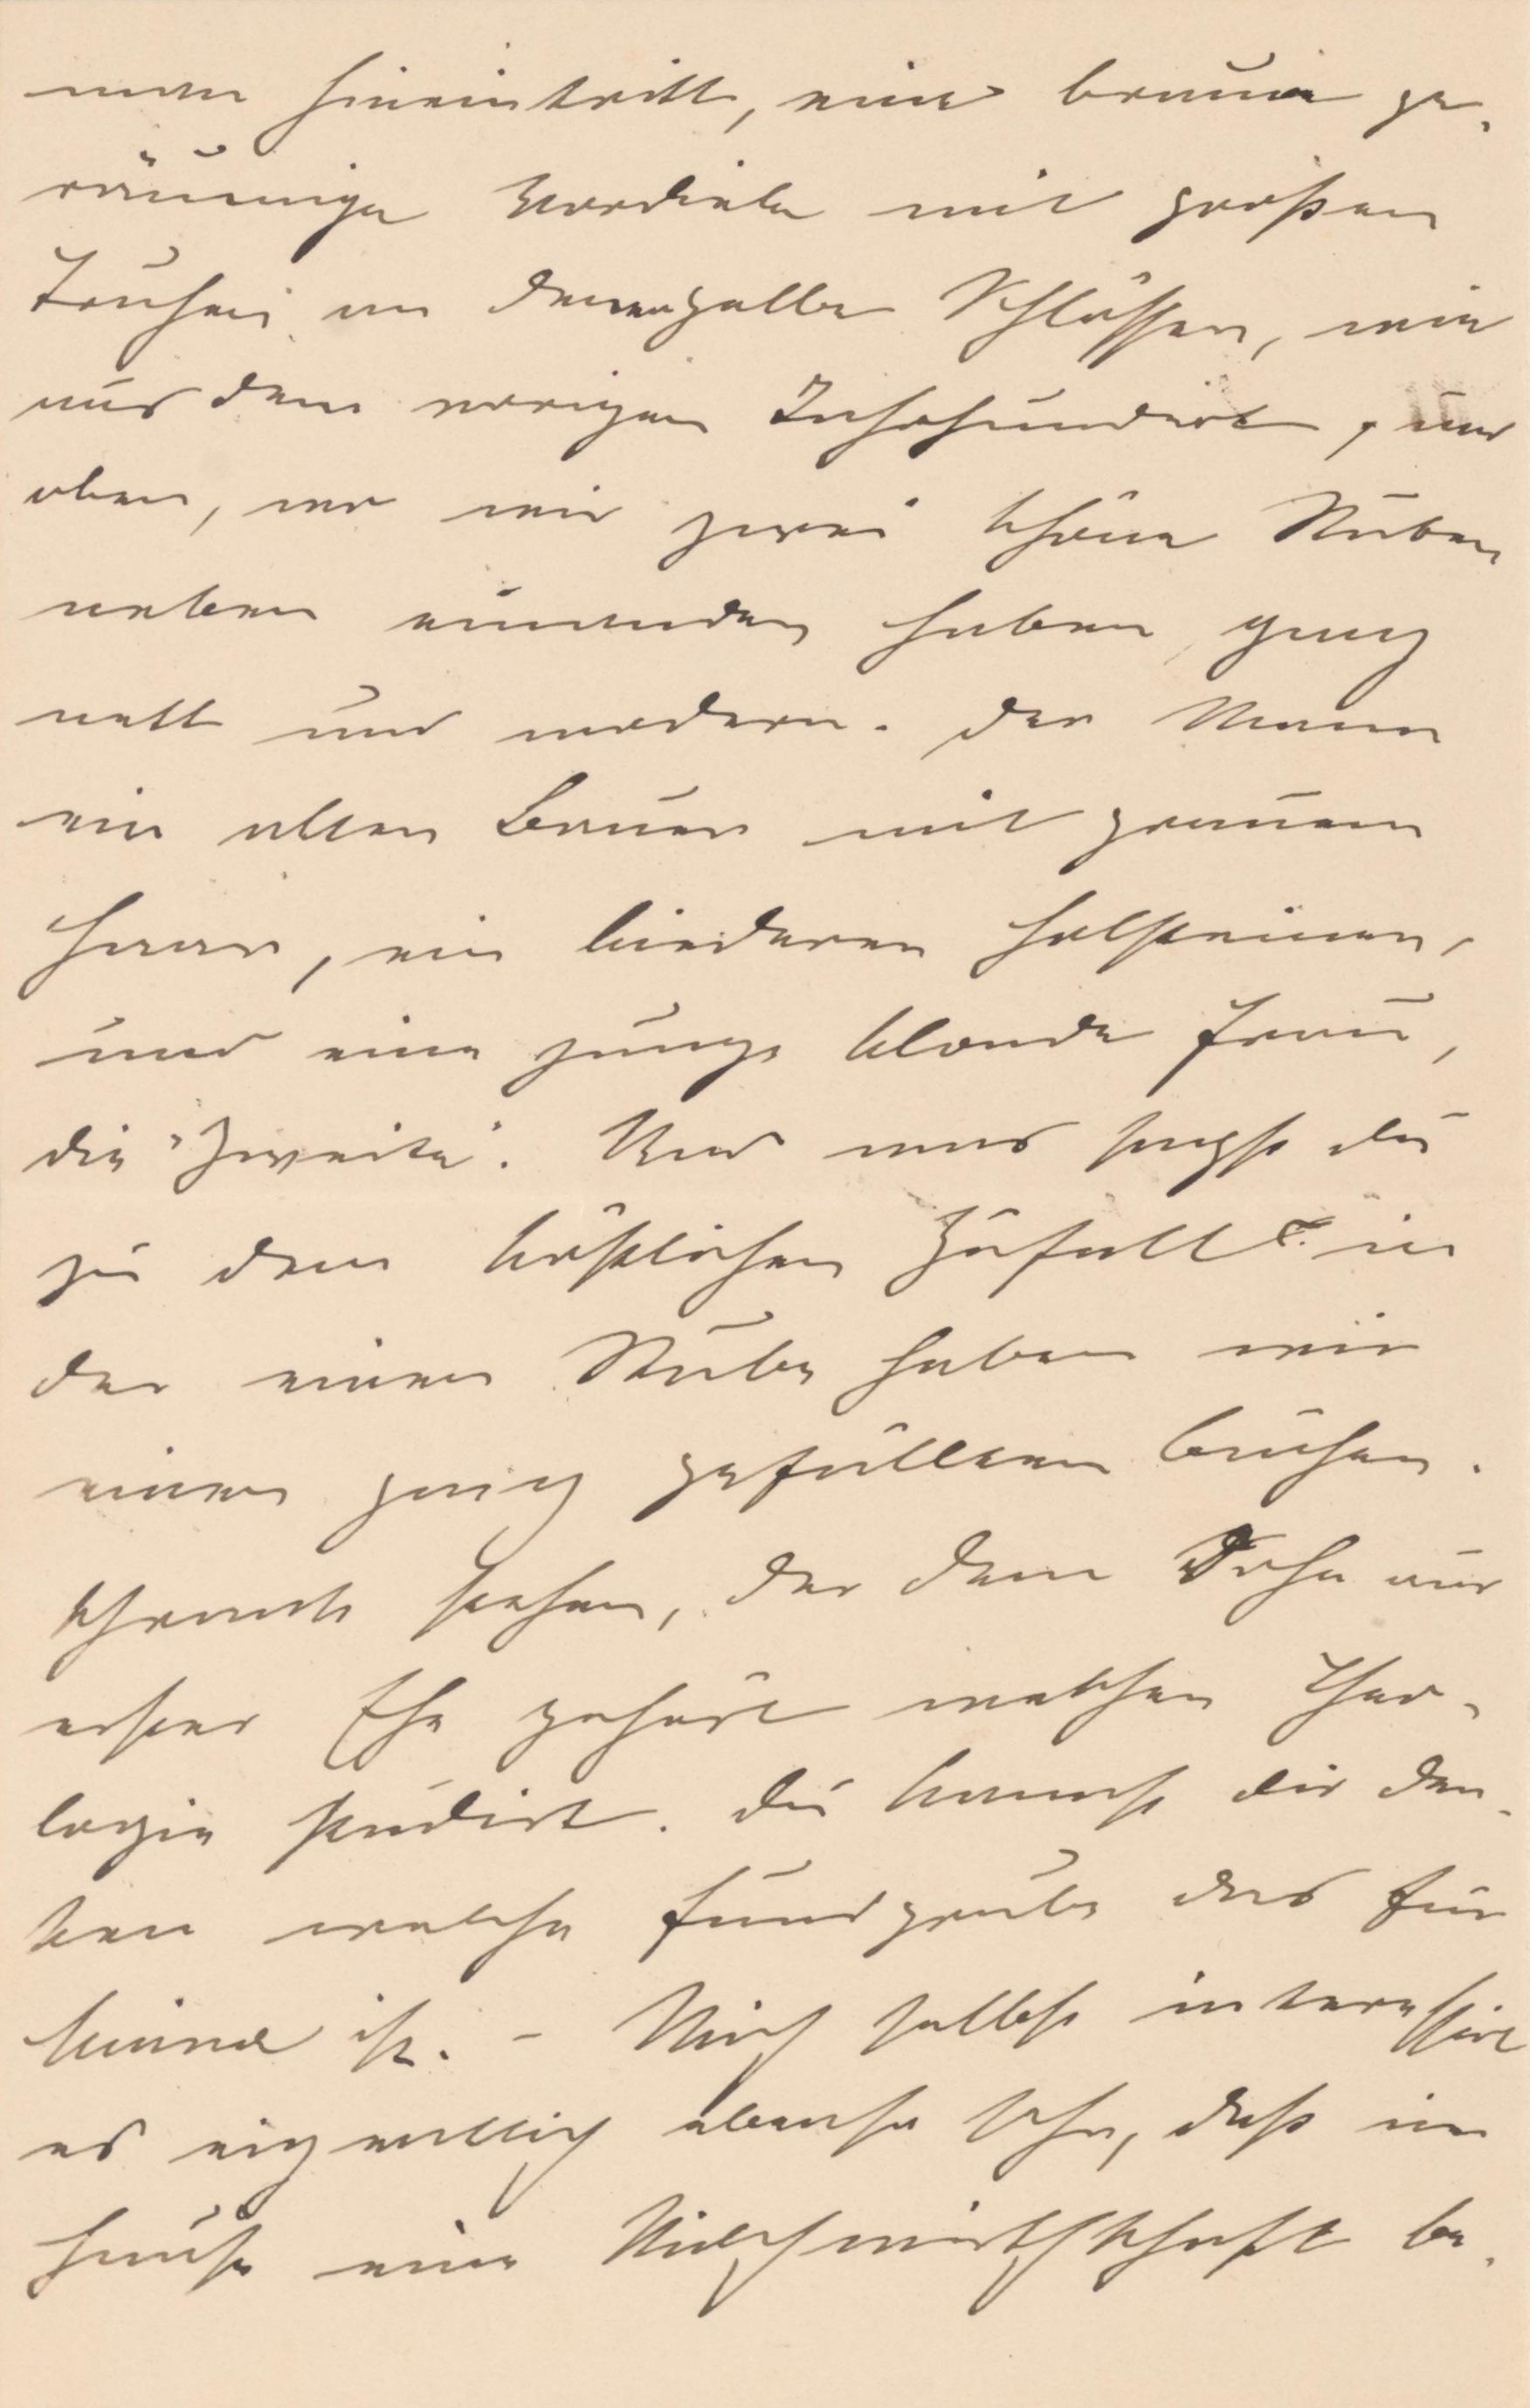 man hineintritt, eine braune ge-
räumige Vordiele mit großen
Truhen an denen gelbe Schlösser, wie
aus dem vorigen Jahrhundert, und
oben, wo wir zwei schöne Stuben
neben einander haben, ganz
nett und modern. Der Mann
ein alter Bauer mit grauem
Haar, ein biederer Holsteiner,
und eine junge blonde Frau,
die "Zweite". Und was sagst du
zu dem köstlichen Zufall: in
der einen Stube haben wir
einen ganz gefüllten Bücher-
schrank stehen, der dem Sohn aus
erster Ehe gehört welcher Theo-
logie studirt. Du kannst dir den-
ken welche Fundgrube das für
ist. – Mich selbst interessirt
es eigentlich ebenso sehr, daß im
Hause eine Milchwirthschaft be-